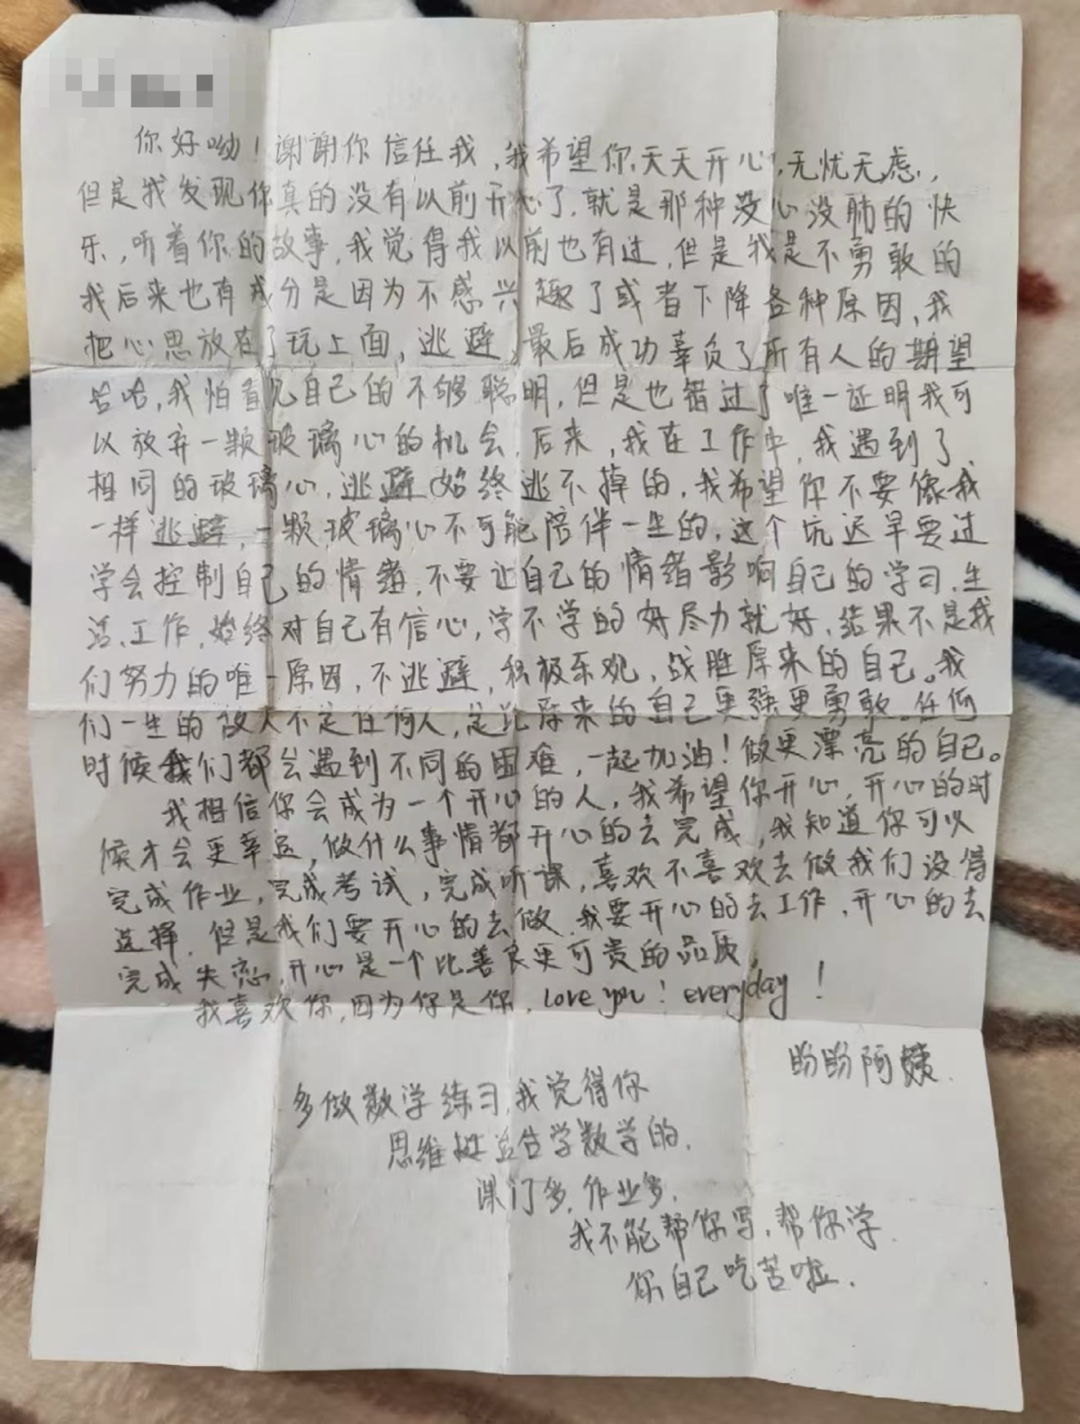 你好呦！谢谢你信任我，我希望你天天开心，无忧无虑，
但是我发现你真的没有以前开心了，就是那种没心没肺的快
乐，听着你的故事，我觉得我以前也有过，但是我是不勇敢的
我后来也有成分是因为不感兴趣了或者下降各种原因，我
把心思放在了玩上面，逃避，最后成功辜负了所有人的期望
哈哈，我怕看见自己的不够聪明，但是也错过了唯一证明我可
以放弃一颗玻璃心的机会，后来，我在工作中，我遇到了，
相同的玻璃心，逃避始终逃不掉的，我希望你不要像我
一样逃避，一颗玻璃心不可能陪伴一生的，这个坑迟早要过
学会控制自己的情绪，不要让自己的情绪影响自己的学习、生
活、工作，始终对自己有信心，学不学的好尽力就好，结果不是我
们努力的唯一原因，不逃避，积极乐观，战胜原来的自己。我
们一生的敌人不是任何人，是比原来的自己更强更勇敢。任何
时候我们都会遇到不同的困难，一起加油！做更漂亮的自己。
我相信你会成为一个开心的人，我希望你开心，开心的时
候才会更幸运，做什么事情都开心的去完成，我知道你可以
完成作业，完成考试，完成听课，喜欢不喜欢去做我们没得
选择，但是我们要开心的去做，我要开心的去工作，开心的去
完成失恋，开心是一个比善良更可贵的品质，
我喜欢你，因为你是你，love you！everyday！
盼盼阿姨.
多做数学练习，我觉得你
思维挺适合学数学的.
课门多，作业多，
我不能帮你写，帮你学
你自己吃苦啦.